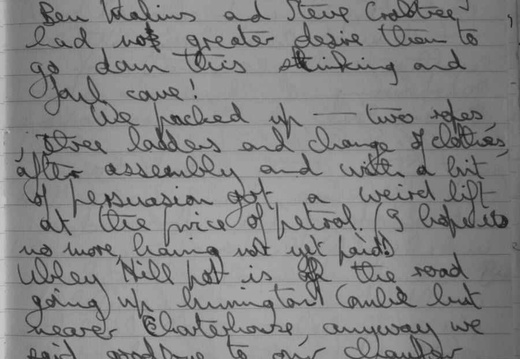 Ben Malins and Steve Crabtree
had not greater desire then to
go down this stinking and
foul cave!
We packed up — two ropes,
three ladders and change of clothes,
after assembly and with a bit
of persuasion got a weird lift
at the price of petrol. (I hope its
no more, having not yet paid)
Ubley Hill pot is off the road
going up Burrington Combe but
nearer Charterhouse, anyway we
said goodbye to our